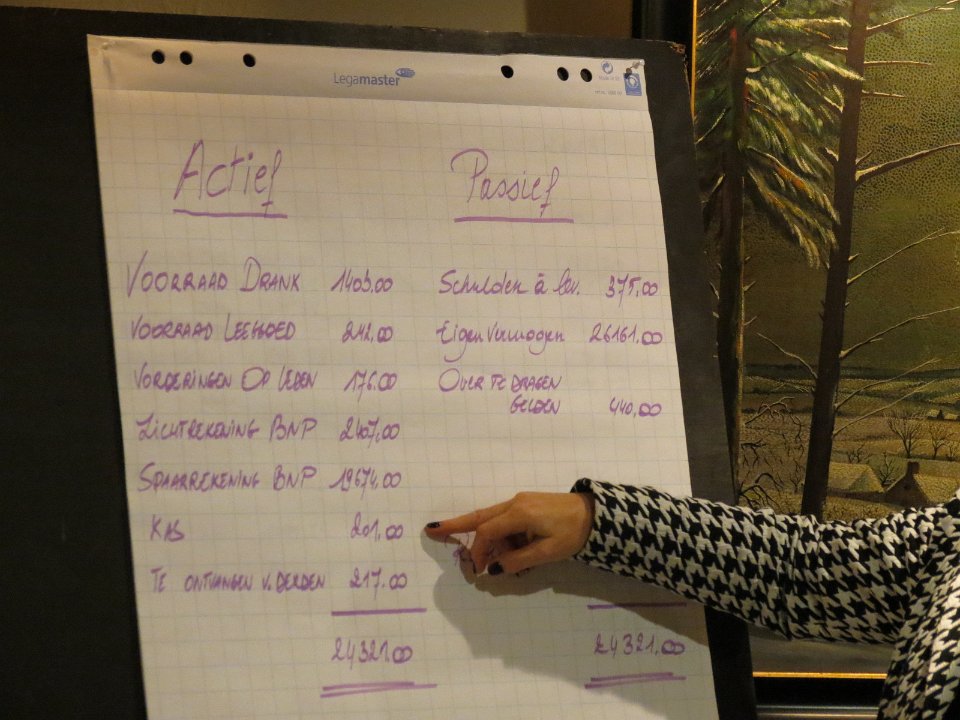 Legamaster
Actief Passief
VOORRAAD DRANK 1403.00 Schulden à lev. 375.00
VOORRAAD LEEGGOED 242.00 Eigen Vermogen 26161.00
VORDERINGEN OP LEDEN 176.00 OVER TE DRAGEN
GELDEN 440.00
ZICHTREKENING BNP 2407.00
SPAARREKENING BNP 19674.00
KAS 201.00
TE ONTVANGEN V. DERDEN 217.00
24321.00 24321.00